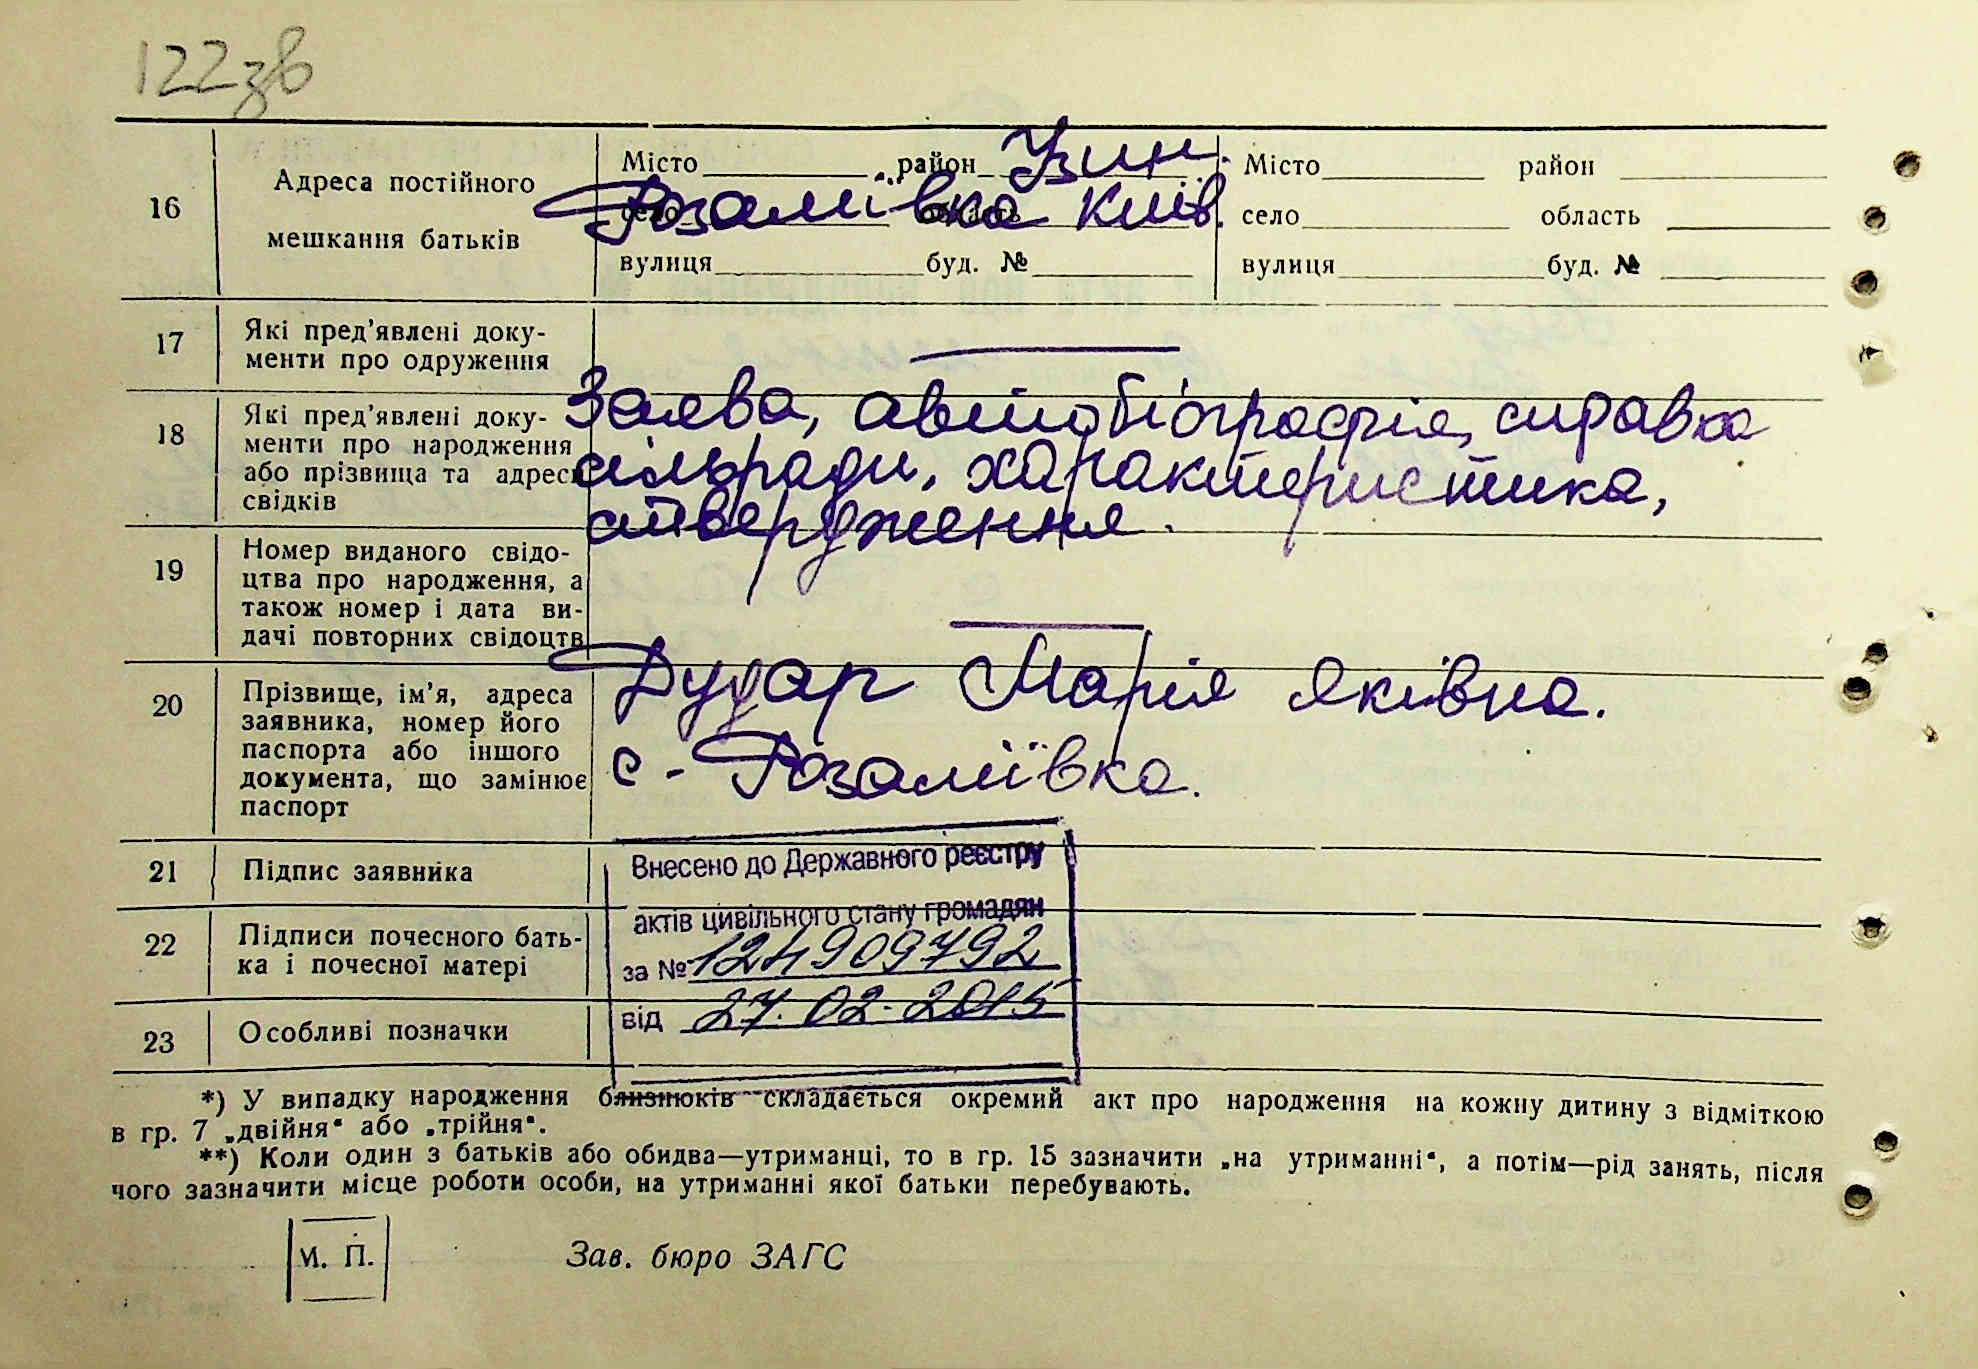 122зв
16 Адреса постійного мешкання батьків
Місто район Узин. Місто район
село Розаліївка область Київ. село область
вулиця буд. № вулиця буд. №
17 Які пред’явлені доку-
менти про одруження
18 Які пред’явлені доку-
менти про народження
або прізвища та адреси
свідків
Заява, автобіографія, справка
сільради, характеристика,
ствердження.
19 Номер виданого свідо-
цтва про народження, а
також номер і дата ви-
дачі повторних свідоцтв
20 Прізвище, ім’я, адреса
заявника, номер його
паспорта або іншого
документа, що замінює
паспорт
Дудар Марія Яківна.
с. Розаліївка.
21 Підпис заявника
22 Підписи почесного бать-
ка і почесної матері
23 Особливі позначки
Внесено до Державного реєстру
актів цивільного стану громадян
за № 124909792
від 27.02.2015
*) У випадку народження близнюків складається окремий акт про народження на кожну дитину з відміткою
в гр. 7 „двійня“ або „трійня“.
**) Коли один з батьків або обидва—утриманці, то в гр. 15 зазначити „на утриманні“, а потім—рід занять, після
чого зазначити місце роботи особи, на утриманні якої батьки перебувають.
М. П. Зав. бюро ЗАГС